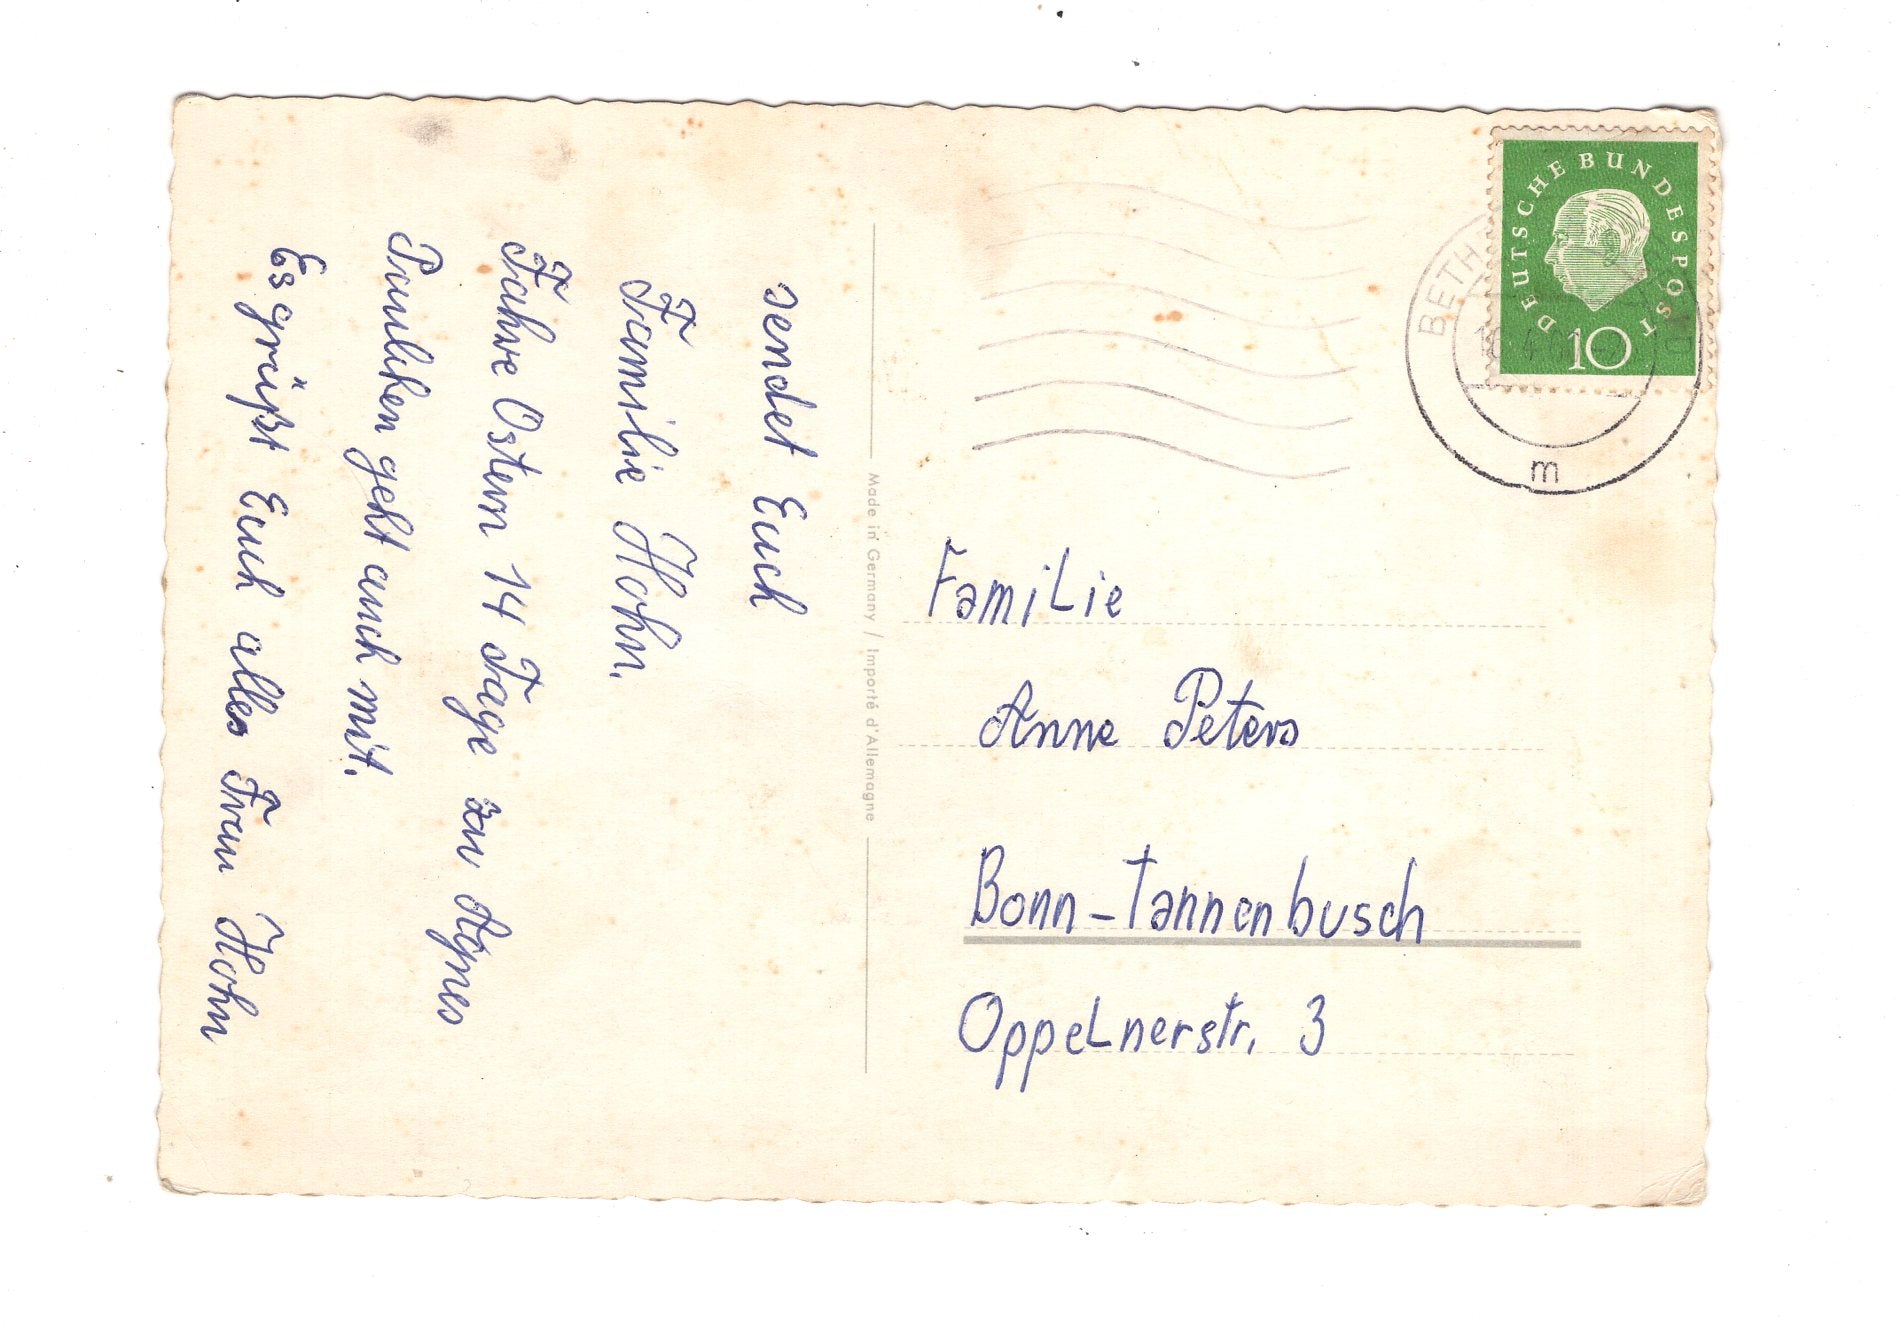 sendet Euch
Familie Hohn.
Fahre Ostern 14 Tage zu Agnes
Pauliken geht auch mit.
Es grüßt Euch alles Frau Hohn
Made in Germany / Importé d'Allemagne
DEUTSCHE BUNDESPOST
10
BETH
m
Familie
Anne Peters
Bonn-Tannenbusch
Oppelnerstr. 3